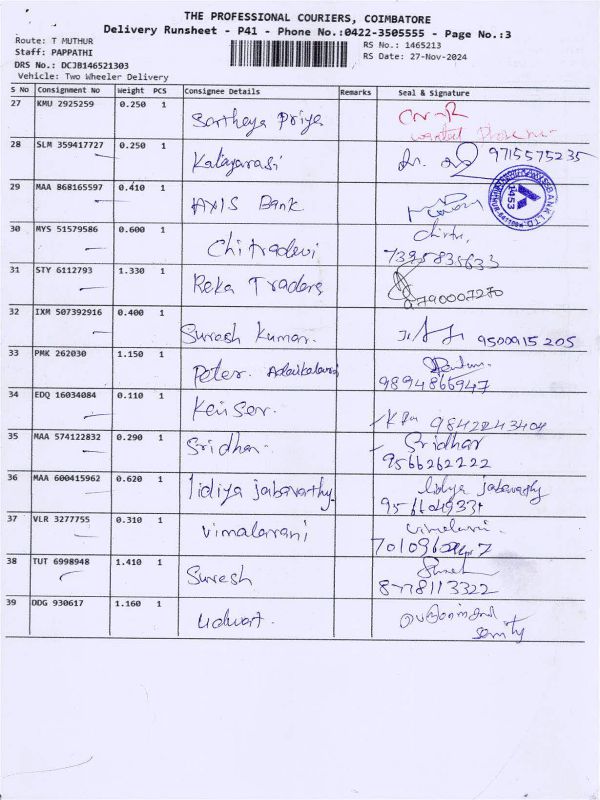 THE PROFESSIONAL COURIERS, COIMBATORE
Delivery Runsheet - P41 - Phone No.:0422-3505555 - Page No.:3
Route: T MUTHUR
Staff: PAPPATHI
DRS No.: DCJB146521303
Vehicle: Two Wheeler Delivery
RS No.: 1465213
RS Date: 27-Nov-2024
S No Consignment No Weight PCS Consignee Details Remarks Seal & Signature
27 KMU 2925259 0.250 1 Priya
28 SLM 359417727 0.250 1 Kalayarasi 9715575235
29 MAA 868165597 0.410 1 AXIS Bank
BANK LTD.
1453
30 MYS 51579586 0.600 1 Chitradevi
7395835633
31 STY 6112793 1.330 1 Reka Traders
8790007270
32 IXM 507392916 0.400 1 Suresh Kumar. 9500915205
33 PMK 262030 1.150 1 Peter.
9894866947
34 EDQ 16034084 0.110 1 Keiser. 9842243404
35 MAA 574122832 0.290 1 Sridhar. Sridhar
9566262222
36 MAA 600415962 0.620 1 lidiya jabavarthy
37 VLR 3277755 0.310 1 Vimalarani
38 TUT 6998948 1.410 1 Suresh
8778113322
39 DDG 930617 1.160 1